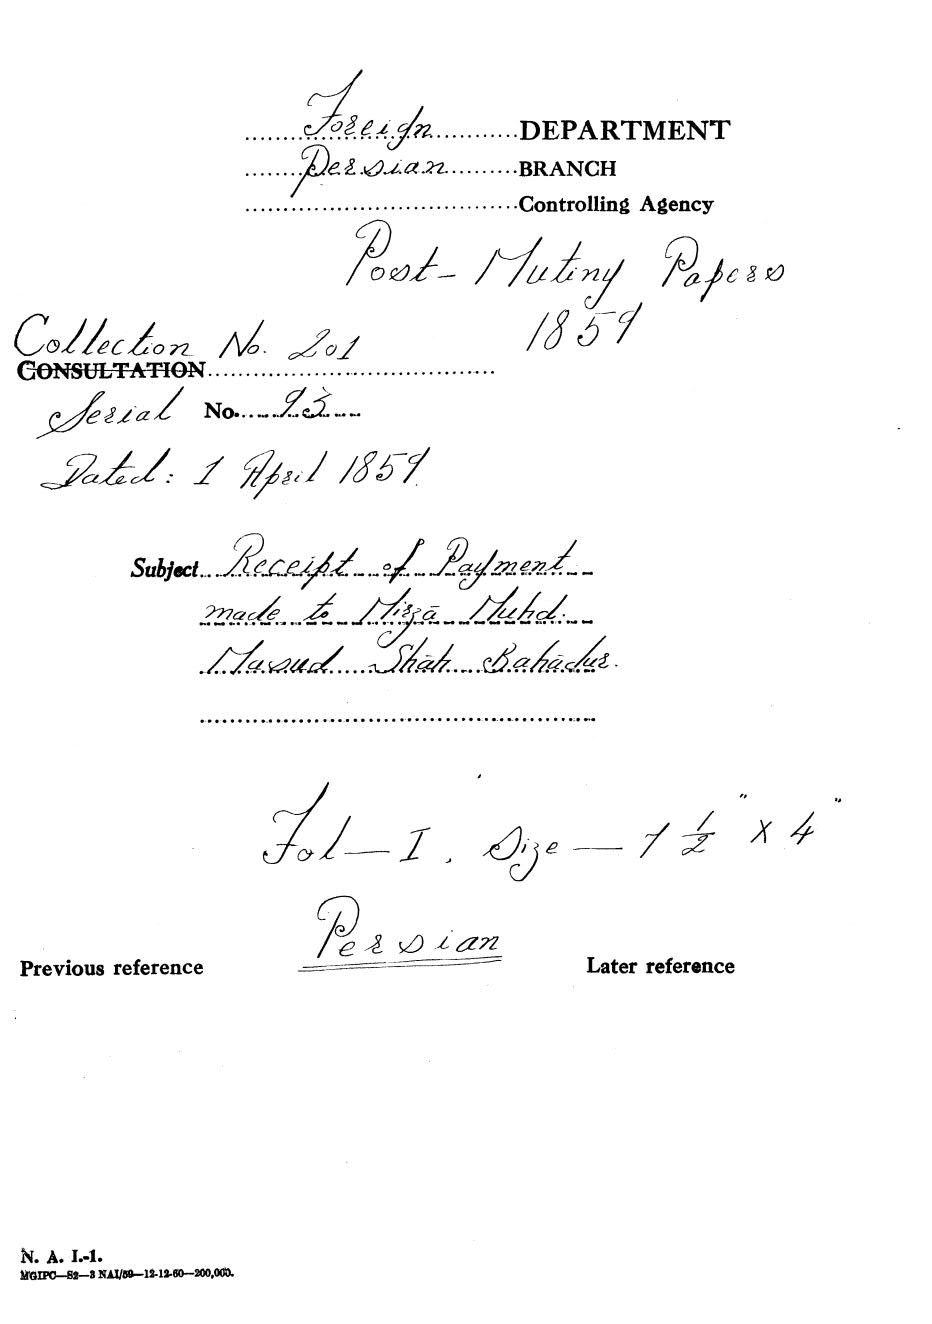 Foreign DEPARTMENT
Persian BRANCH
Controlling Agency
Post-Mutiny Papers
1859
Collection No. 201
CONSULTATION
Serial No. 93
Dated: 1 April 1859
Subject Receipt of Payment
made to Mirzā Muhd.
Masud Shāh Bahādur.
Fol— I, Size — 7 1/2" X 4"
Persian
Previous reference Later reference
N. A. I.-1.
MGIPC—S2—3 NAI/59—12-12-60—200,000.